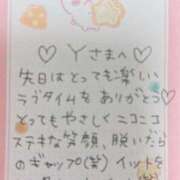 ♡ Yさまへ ♡
先日はとっても楽しい
ラブタイムをありがとう♡
とってもやさしくニコニコ
ステキな笑顔、脱いだら
のギャップ(笑)イットを